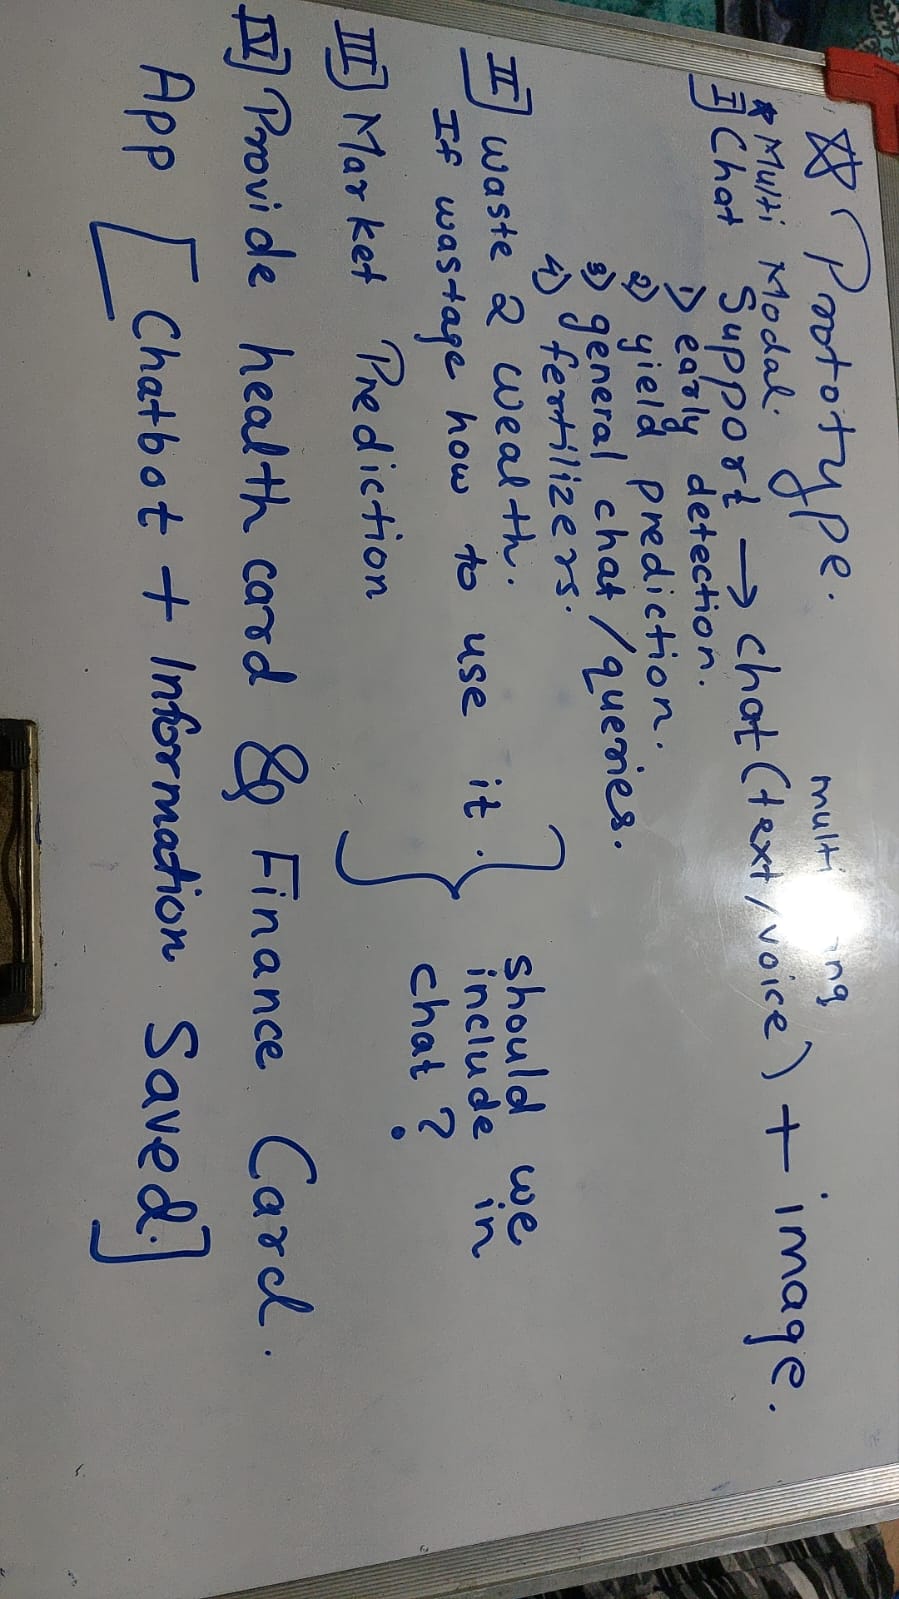 ☆ Prototype.
* Multi Modal.
I] Chat Support → chat (text/voice) + image.
1) early detection.
2) yield prediction.
3) general chat/queries.
4) fertilizers.
II] Waste 2 Wealth.
If wastage how to use it.
should we
include in
chat ?
III] Market Prediction
IV] Provide health card & Finance Card.
App [Chatbot + Information Saved.]